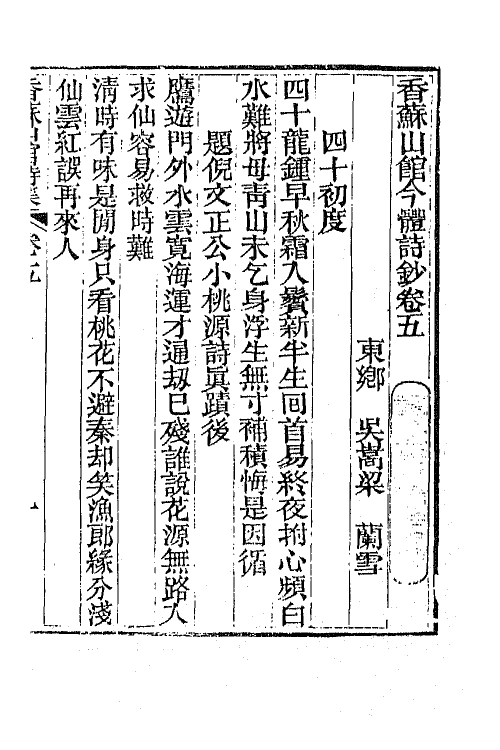 香蘇山館今體詩鈔卷五
東鄉　吳嵩梁　蘭雪
四十初度
四十龍鍾早秋霜入鬢新半生回首易終夜拊心頻白
水難將母靑山未乞身浮生無寸補積悔是因循
題倪文正公小桃源詩眞蹟後
鴈遊門外水雲寬海運才通刼已殘誰說花源無路入
求仙容易救時難
淸時有味是閒身只看桃花不避秦却笑漁郎緣分淺
仙雲紅誤再來人